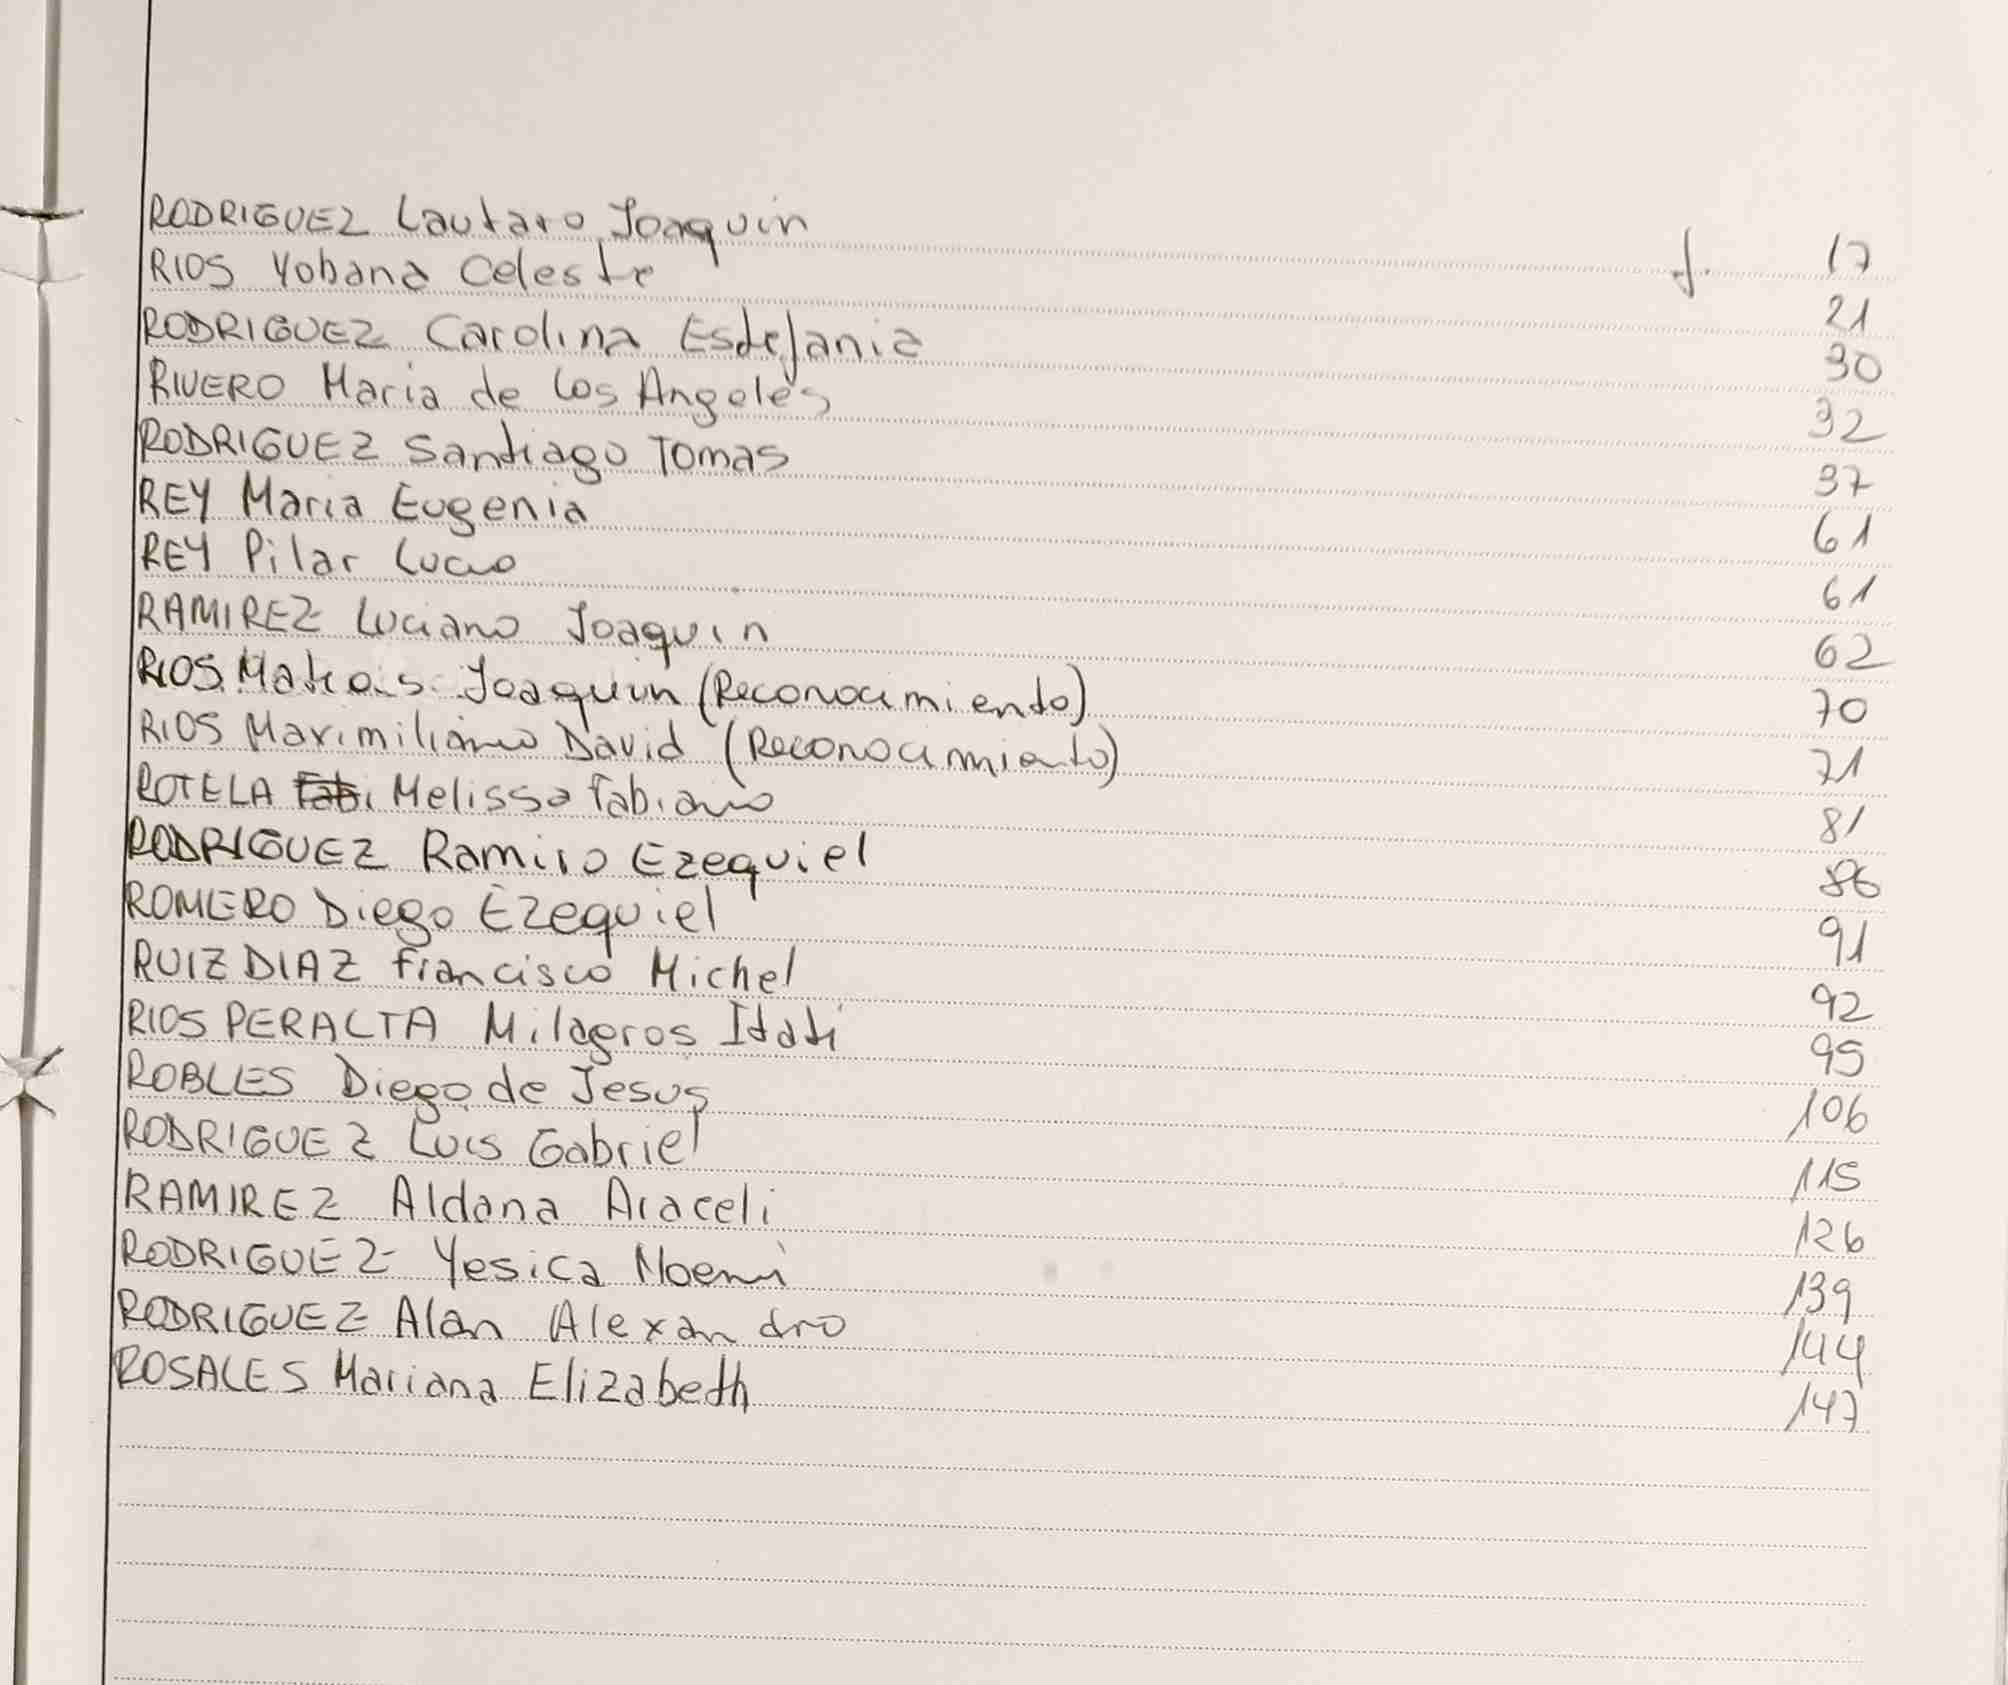 RODRIGUEZ Lautaro Joaquin f. 17
RIOS Yobana Celeste 21
RODRIGUEZ Carolina Estefania 30
RIVERO Maria de los Angeles 32
RODRIGUEZ Santiago Tomas 37
REY Maria Eugenia 61
REY Pilar 61
RAMIREZ Luciano Joaquin 62
RIOS Joaquin (Reconocimiento) 70
RIOS Maximiliano David (Reconocimiento) 71
ROTELA Melissa Fabiana 81
RODRIGUEZ Ramiro Ezequiel 86
ROMERO Diego Ezequiel 91
RUIZ DIAZ Francisco Michel 92
RIOS PERALTA Milagros Itati 95
ROBLES Diego de Jesus 106
RODRIGUEZ Luis Gabriel 115
RAMIREZ Aldana Araceli 126
RODRIGUEZ Yesica Noemi 139
RODRIGUEZ Alan Alexandro 144
ROSALES Mariana Elizabeth 147